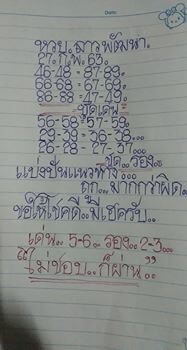 Date:
หวย ลาวพัฒนา.
27. ก.พ. 63.
46-48 = 87-89.
66-68 = 67-69.
86-88 = 47-49.
ชุดเด่น..
56-58 = 57-59.
29-39 = 36-38...
26-28 = 27-37...
ชุด.. รอง..
แบ่งปันแนวทาง
ถูก.. มากกว่าผิด.
ขอให้โชคดี.. มีเฮครับ..
เด่น.. 5-6.. รอง... 2-3...
"ไม่ชอบ.. ก็ผ่าน.."